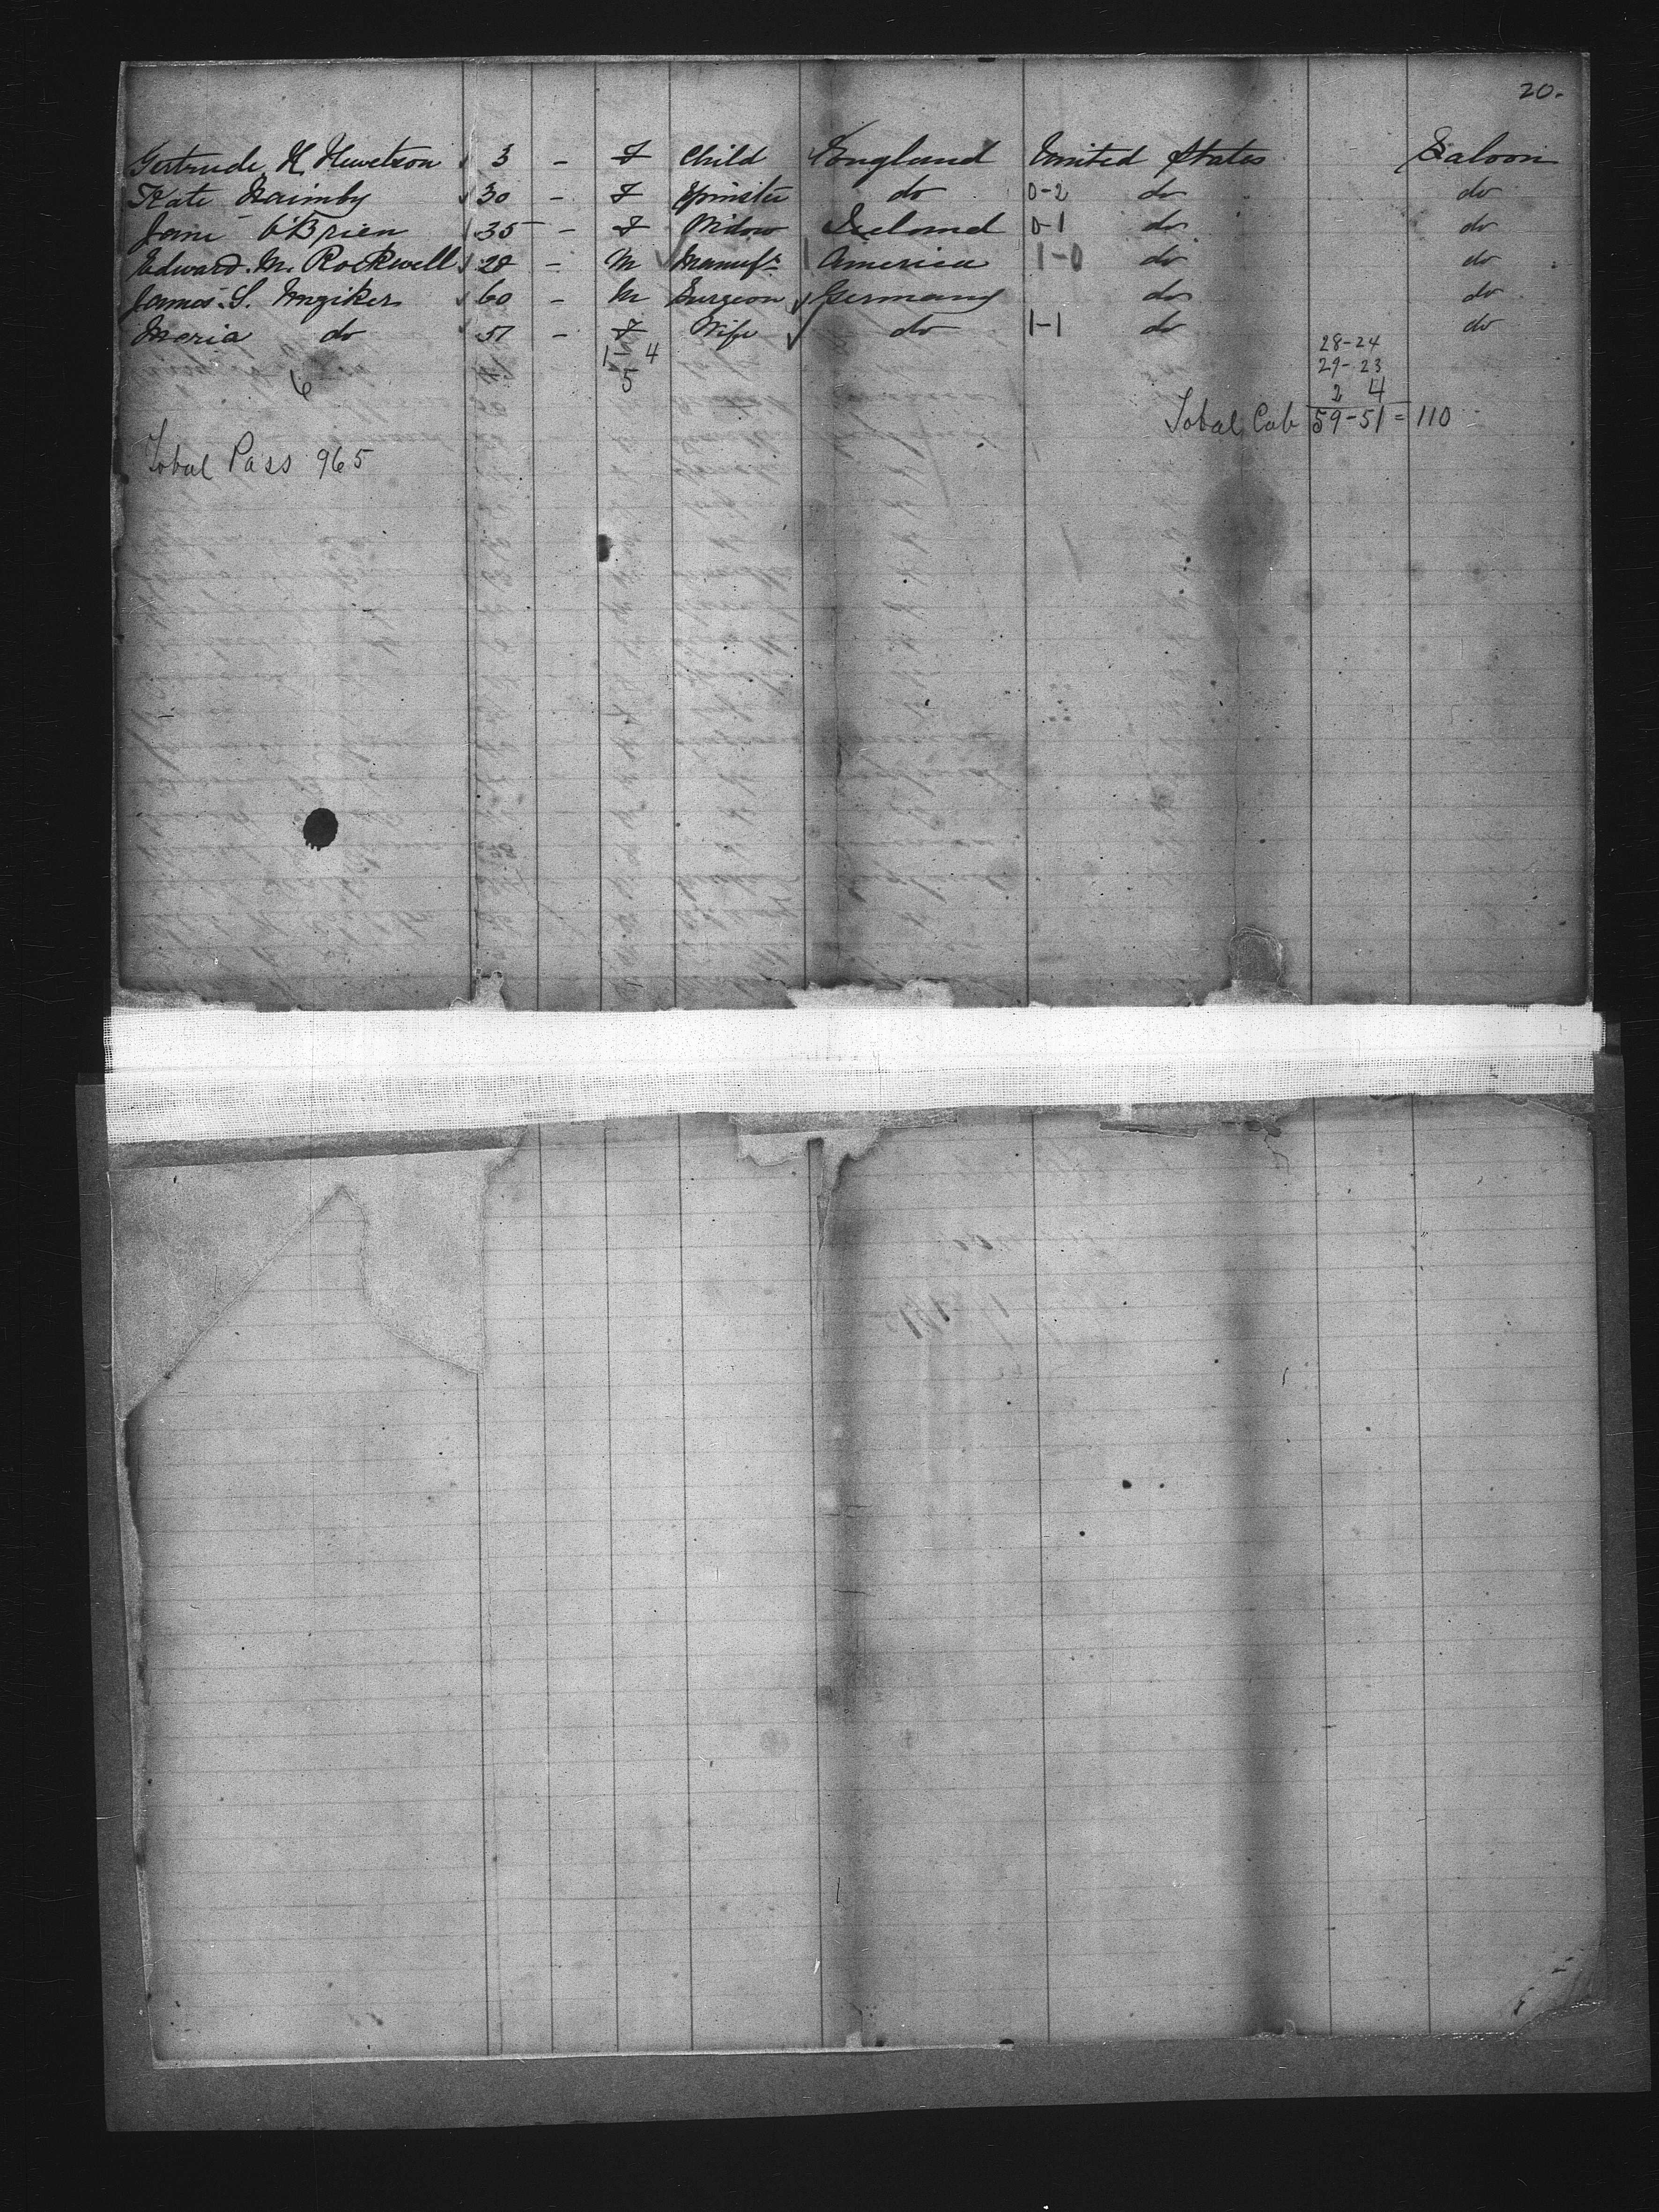 20.
Gertrude H. Hewetson 3 - F Child England United States Saloon
Kate 30 - F Spinster do 0-2 do do
Jane O'Brien 35 - F Widow Ireland 0-1 do do
Edward M. Rockwell 28 - M Manufr America 1-0 do do
James S. 60 - M Surgeon Germany do do
Maria do 51 - F Wife do 1-1 do do
1-4 28-24
6 5 29-23
2 4
Total Cab 59-51 = 110
Total Pass 965